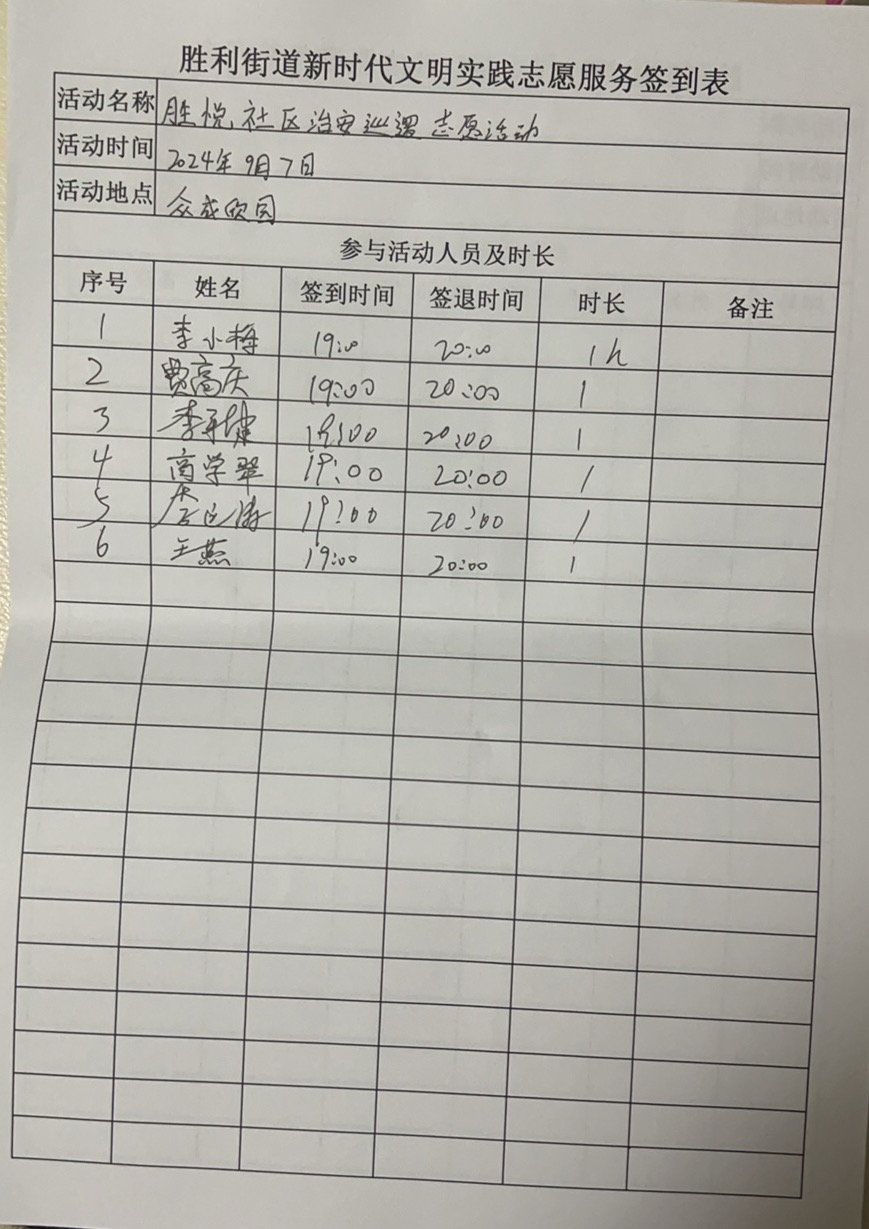 胜利街道新时代文明实践志愿服务签到表
活动名称 胜悦社区治安巡逻志愿活动
活动时间 2024年9月7日
活动地点 众成欧园
参与活动人员及时长
序号 姓名 签到时间 签退时间 时长 备注
1 李小梅 19:00 20:00 1h
2 费高庆 19:00 20:00 1
3 19:00 20:00 1
4 商学翠 19:00 20:00 1
5 19:00 20:00 1
6 王燕 19:00 20:00 1